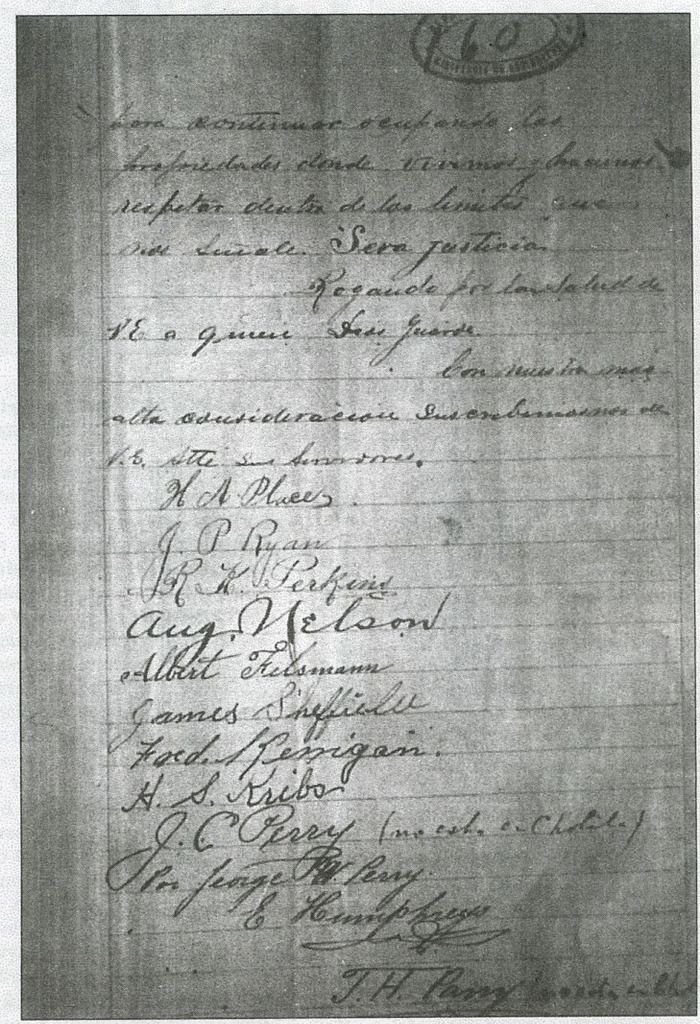 160
para continuar ocupando las
propiedades donde vivimos y hacernos
respetar dentro de los limites que
nos señale. Sera justicia.
Rogando por la salud de
V.E a quien Dios guarde
Con nuestra mas
alta consideracion suscribimosnos de
V.E. Atte sus servidores.
H A Place
J. P Ryan
R. K. Perkins
Aug. Nelson
Albert Felsmann
James Sheffield
Fred. Kerrigan.
H. S. Kribs
J. C Perry (no esta en Cholila)
Por George W Perry
E Humphreys
T. H. Parry